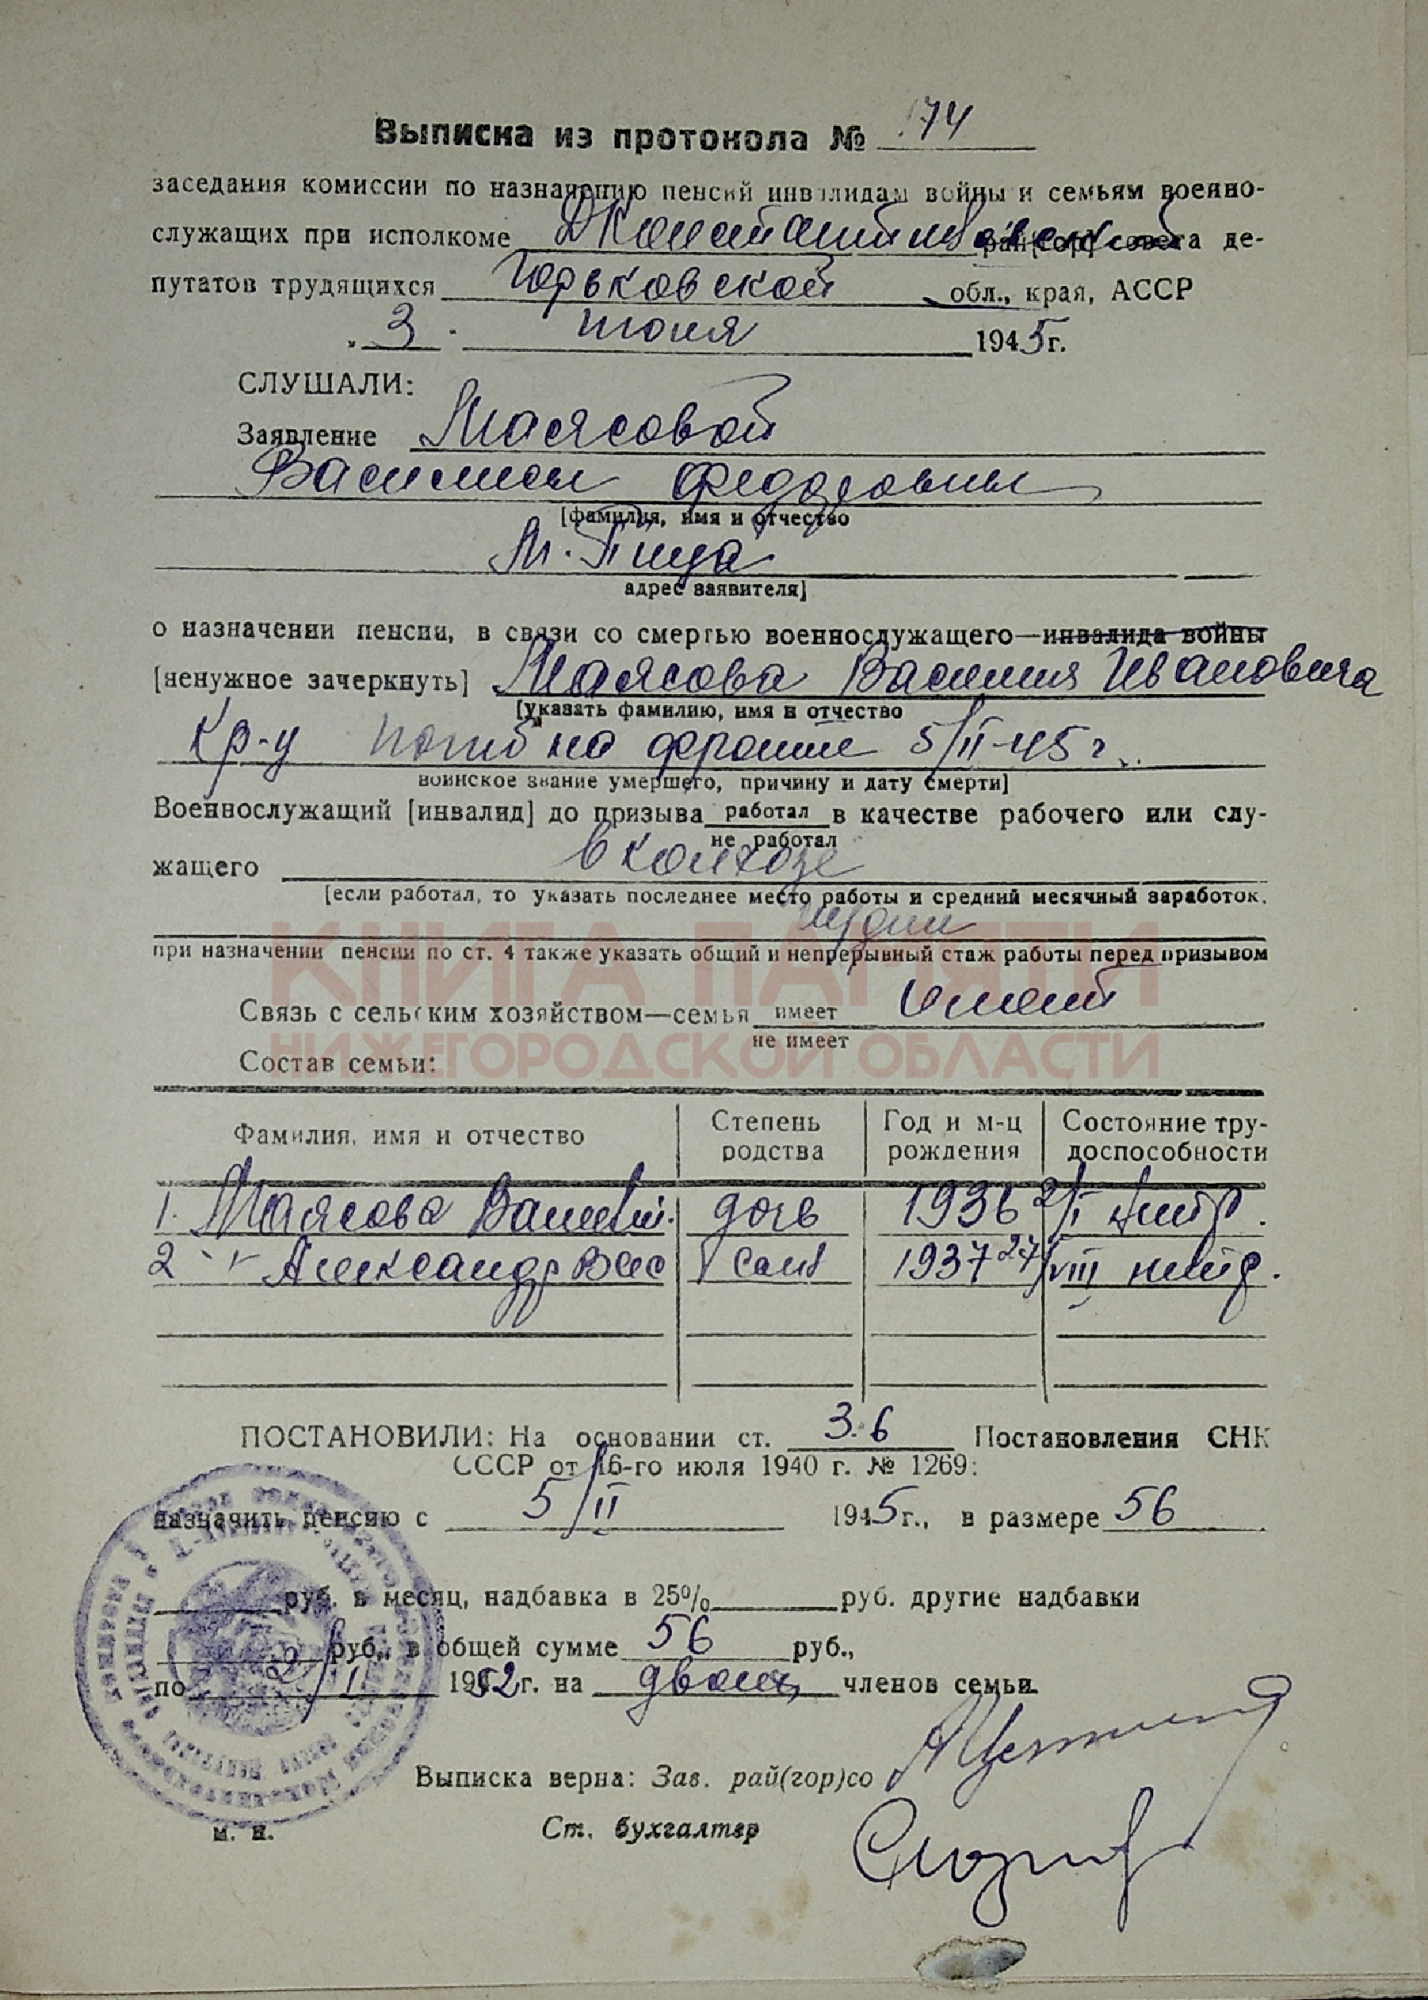 Выписка из протокола № 174
заседания комиссии по назначению пенсий инвалидам войны и семьям военно-
служащих при исполкоме ДКонстантиновский рай(гор) совета де-
путатов трудящихся Горьковской обл., края, АССР
„3" июня 1945 г.
СЛУШАЛИ:
Заявление Маясовой
Василисы Федоровны
[фамилия, имя и отчество
М. Пица
адрес заявителя]
о назначении пенсии, в связи со смертью военнослужащего—инвалида войны
[ненужное зачеркнуть] Маясова Василия Ивановича
[указать фамилию, имя и отчество
кр-ц погиб на фронте 5/II-45 г.
воинское звание умершего, причину и дату смерти]
Военнослужащий [инвалид] до призыва работал в качестве рабочего или слу-
не работал
жащего в колхозе
[если работал, то указать последнее место работы и средний месячный заработок.
при назначении пенсии по ст. 4 также указать общий и непрерывный стаж работы перед призывом
КНИГА ПАМЯТИ
Связь с сельским хозяйством—семья имеет имеет
не имеет
НИЖЕГОРОДСКОЙ ОБЛАСТИ
Состав семьи:
Фамилия, имя и отчество Степень родства Год и м-ц рождения Состояние тру-доспособности
1. Маясова дочь 1936 2/I нитр.
2 -"- Александр Вас сын 1937 27/VIII нитр.
ПОСТАНОВИЛИ: На основании ст. 3.6 Постановления СНК
СССР от 16-го июля 1940 г. № 1269:
назначить пенсию с 5/II 1945 г., в размере 56
руб. в месяц, надбавка в 25% руб. другие надбавки
руб., в общей сумме 56 руб.,
по 2/I 1952 г. на двоих членов семьи.
Выписка верна: Зав. рай(гор)со
м. п. Ст. бухгалтер